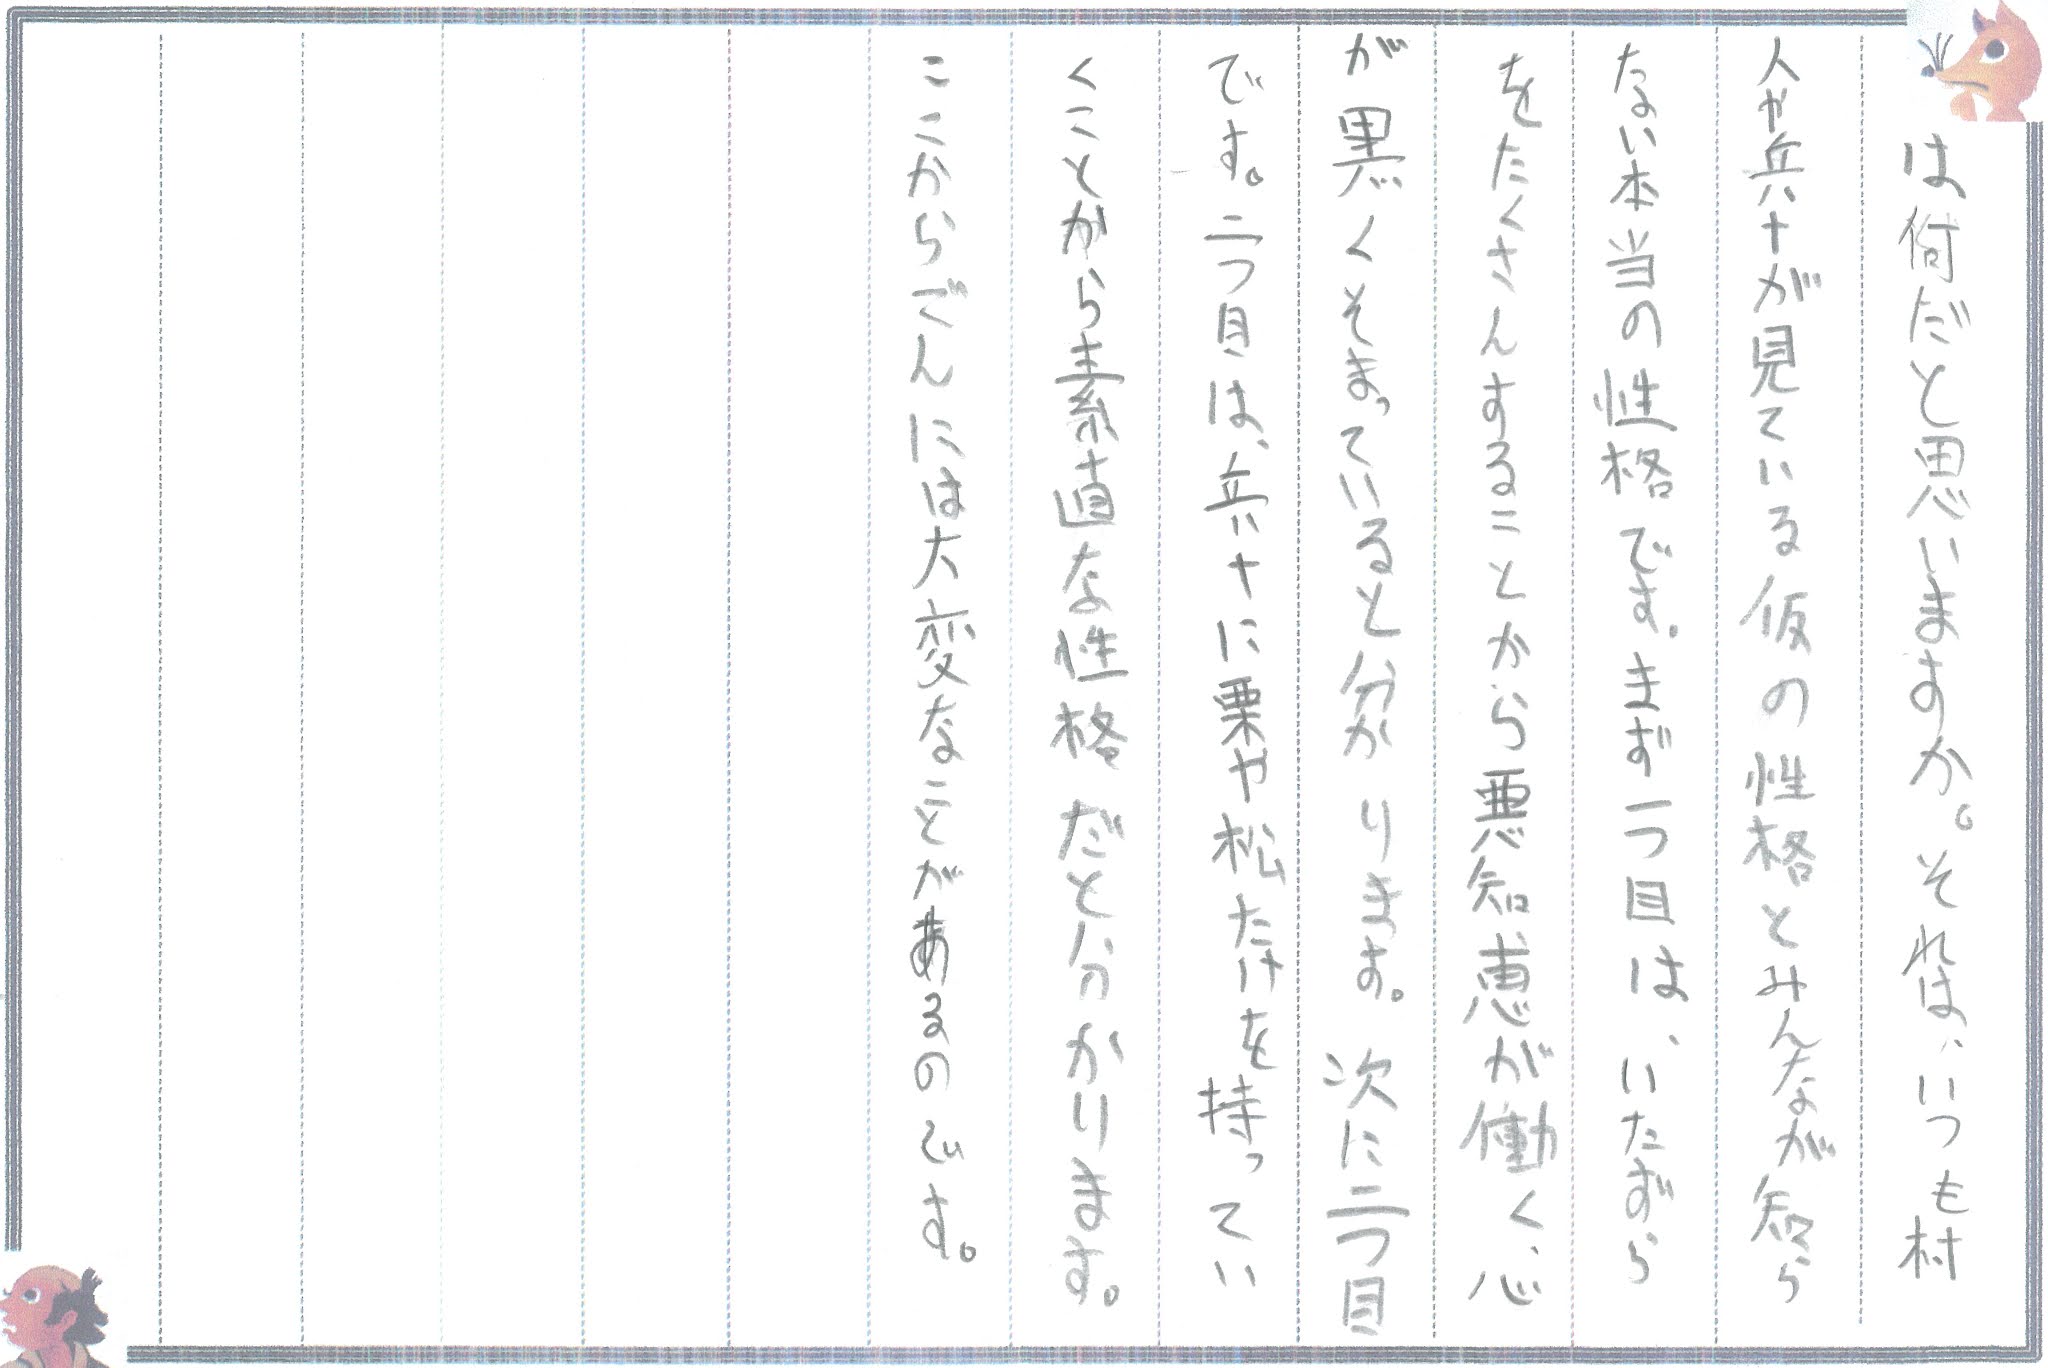 は何だと思いますか。それは、いつも村
人や兵十が見ている仮の性格とみんなが知ら
ない本当の性格です。まず一つ目は、いたずら
をたくさんすることから悪知恵が働く、心
が黒くそまっていると分かります。次に二つ目
です。二つ目は、兵十に栗や松たけを持ってい
くことから素直な性格だと分かります。
ここからごんには大変なことがあるのです。